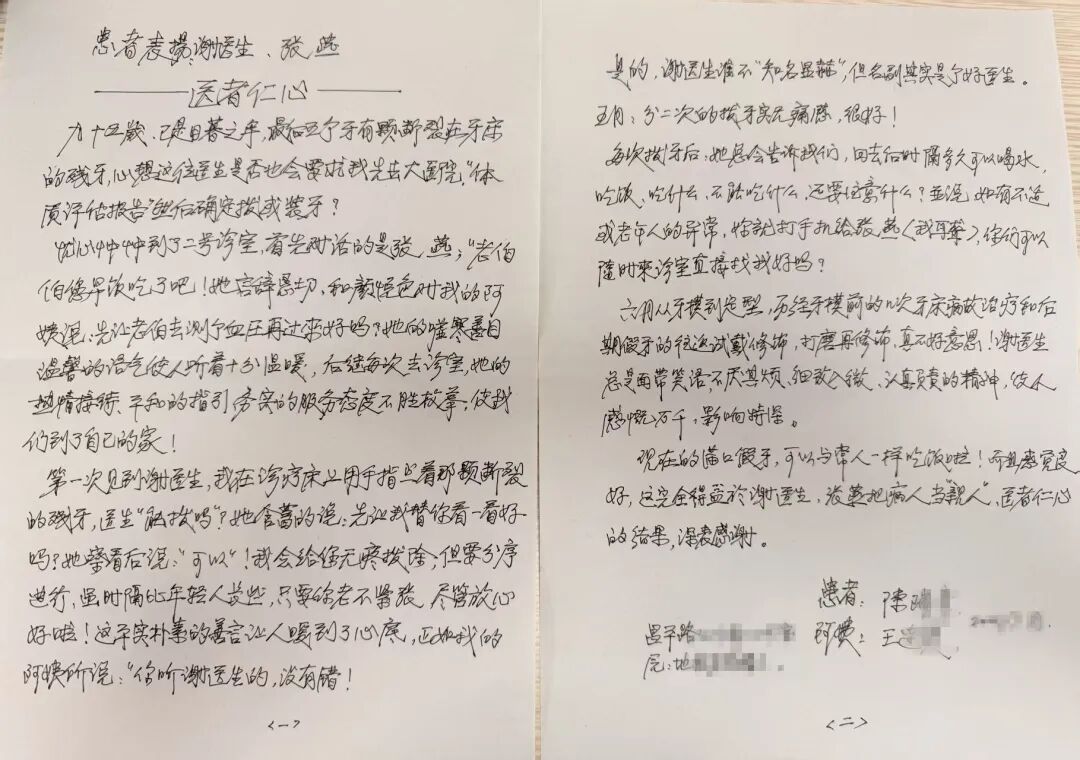 患者表揚:谢医生、张燕
——医者仁心——
九十五岁、已是日暮之年,最后五个牙有颗断裂在牙床
的残牙,心想这位医生是否也会要求我先去大医院,"体
质评估报告"然后确定拔或装牙?
忧心忡忡到了二号诊室,首先对话的是张燕;"老伯
伯您早饭吃了吧!她言辞恳切、和颜悦色对我的阿
姨说:先让老伯去测个血压再过来好吗?她的嘘寒
温馨的语气使人听着十分温暖,后续每次去诊室,她的
热情接待、平和的指引务实的服务态度不胜枚举;使我
们到了自己的家!
第一次见到谢医生,我在诊疗床上用手指着那颗断裂
的残牙,医生"能拔吗"?她含蓄的说:先让我替你看一看好
吗?她察看后说:"可以"!我会给您无疼拔除;但要分序
进行,虽时隔比年轻人长些,只要你老不紧张、尽管放心
好啦!这平实朴素的善言让人暖到了心底,正如我的
阿姨所说:"你听谢医生的,没有错!
<一>
是的,谢医生谁不"知名显赫",但名副其实是个好医生。
五月:分二次的拔牙实无痛感,很好!
每次拔牙后,她总会告诉我们,回去后时隔多久可以喝水
吃饭、吃什么,不能吃什么,还要注意什么?並说:如有不适
或老年人的异常,你就打手机给张燕(我耳聋),你们可以
随时來诊室直接找我好吗?
六月从牙模到定型,历经牙模前的几次牙床病故治疗和后
期假牙的往返试戴修饰,打磨再修饰,真不好意思!谢医生
总是面带笑语,不厌其烦、细致入微、认真负责的精神,使人
感慨万千,影响特深。
现在的满口假牙,可以与常人一样吃饭啦!而且感觉良
好,这完全得益於谢医生,张燕把病人当"親人"、医者仁心
的结果,深表感谢。
患者:陳
阿姨:王
昌平路
<二>